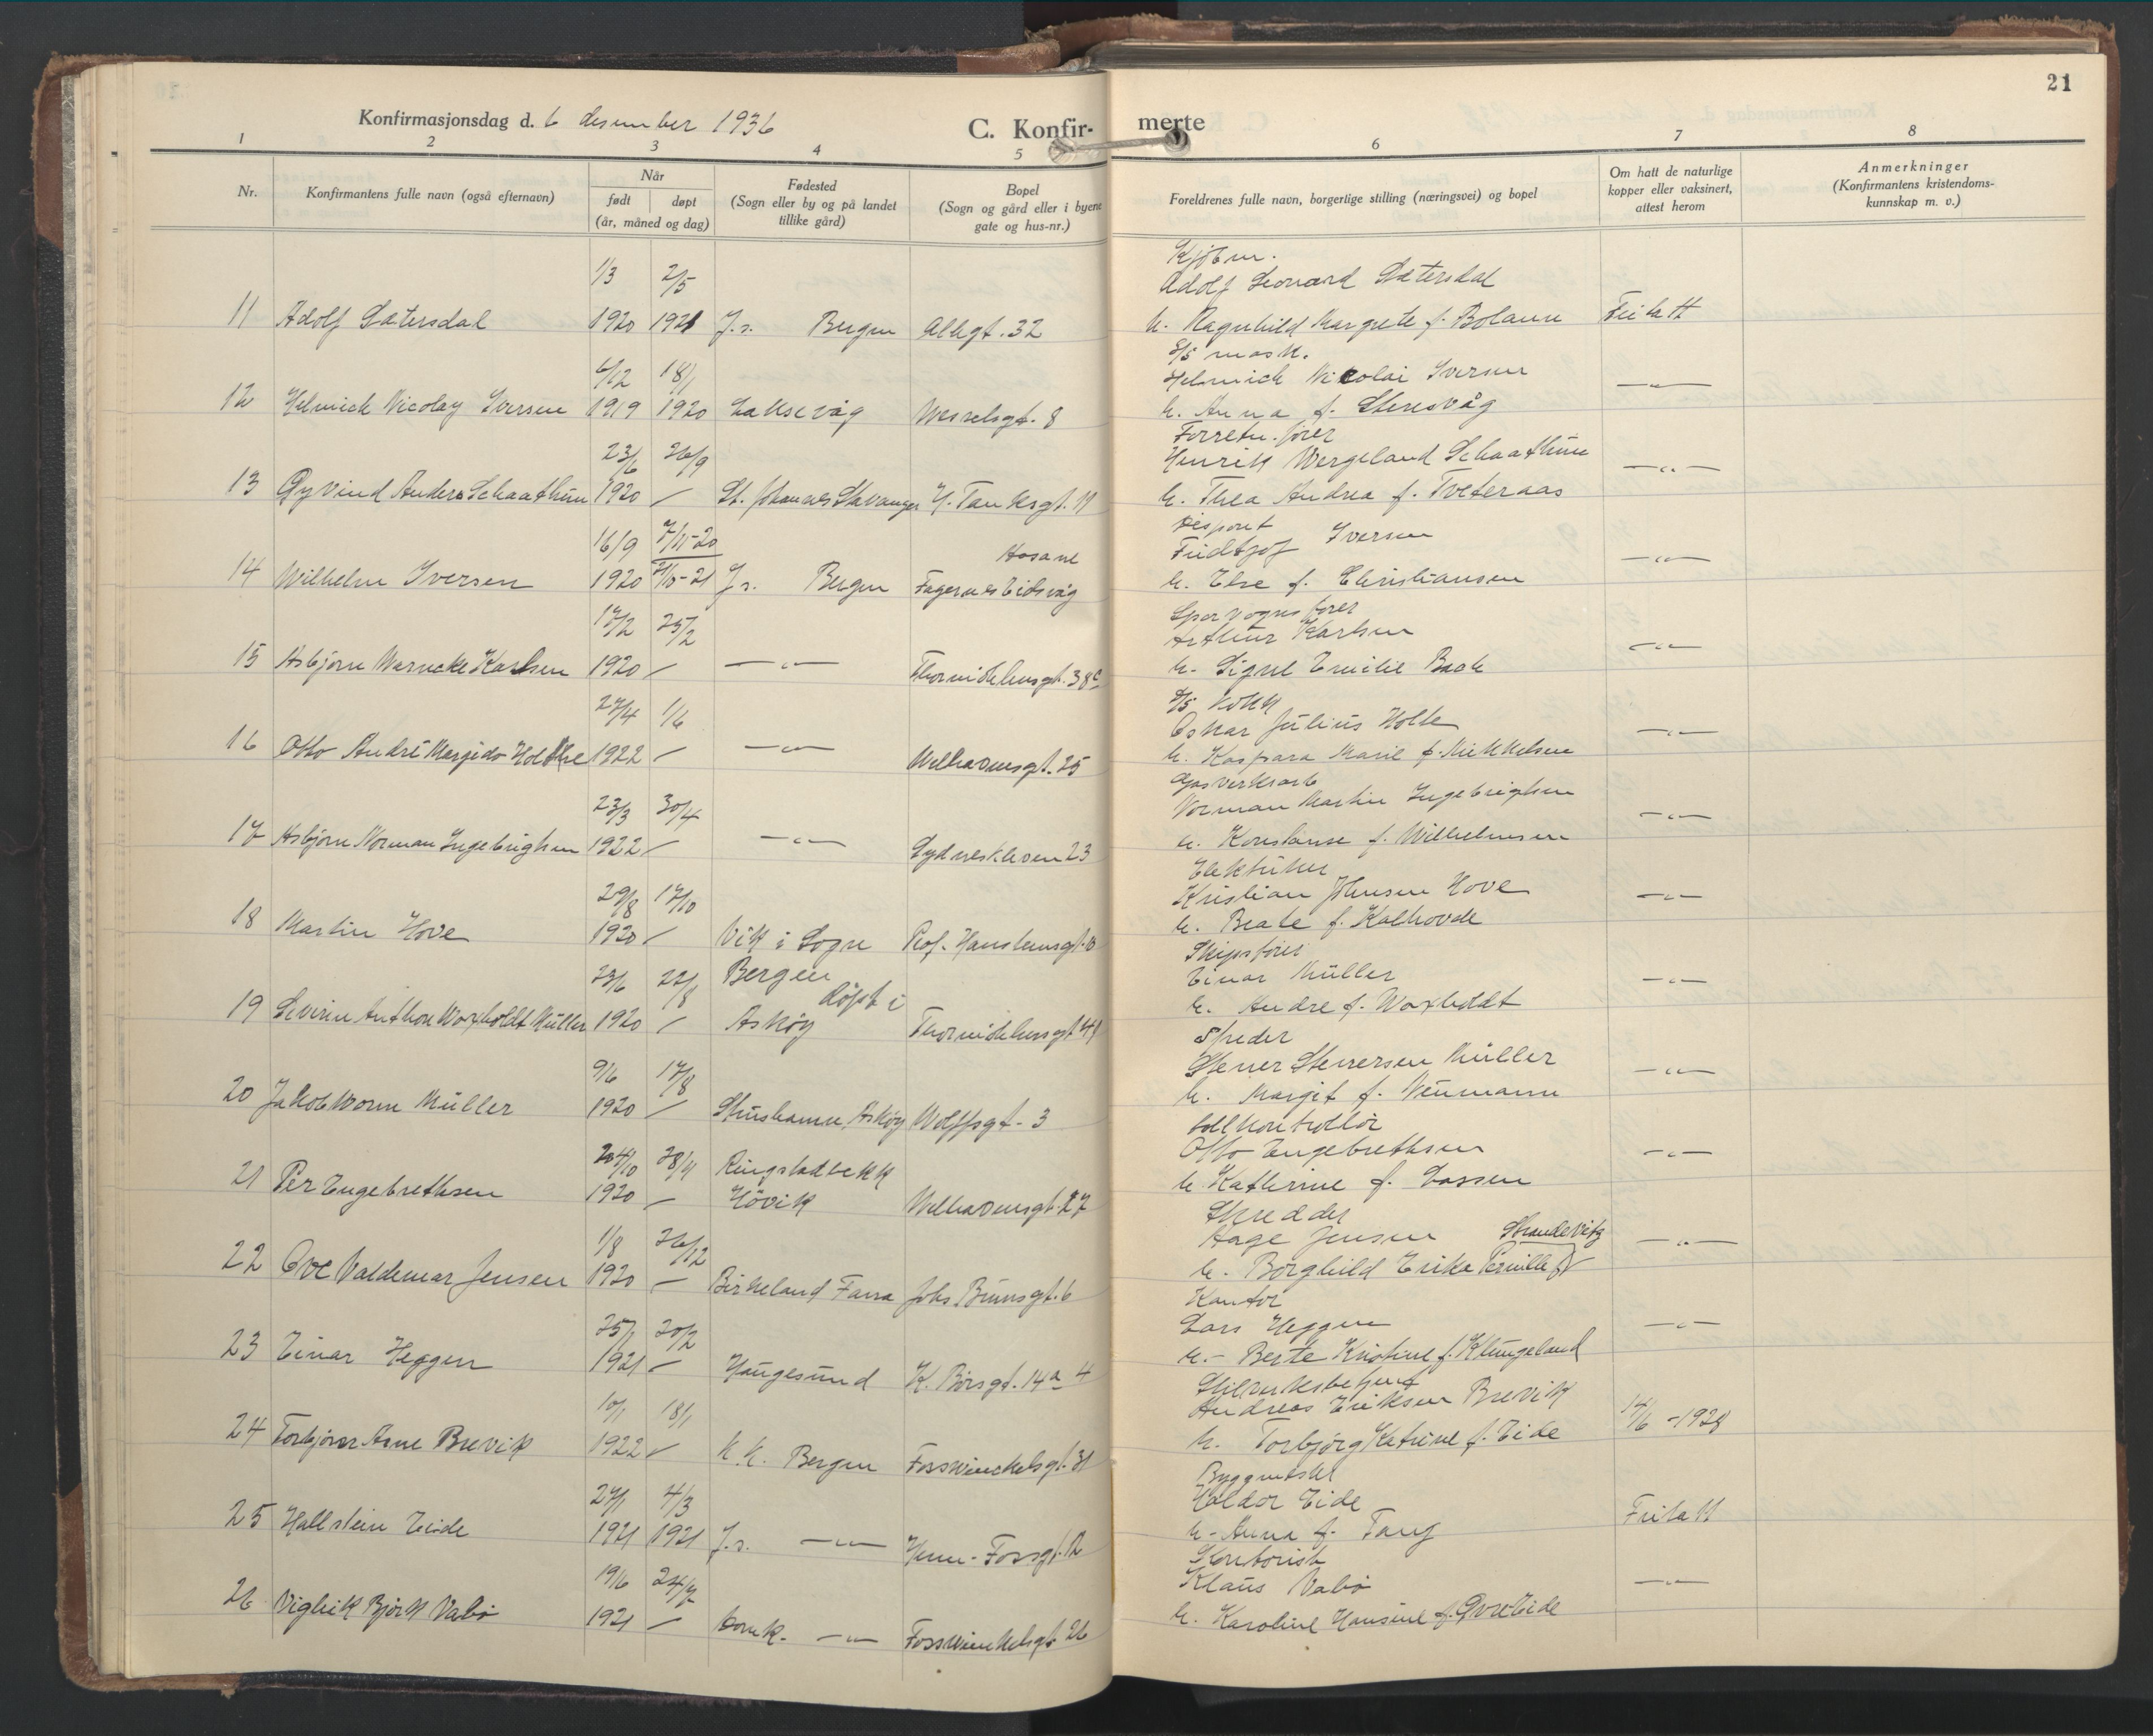 21
Konfirmasjonsdag d. 6 desember 1936
C. Konfir- merte
1 2 3 4 5 6 7 8
Nr.
Konfirmantens fulle navn (også efternavn)
Når
født døpt
(år, måned og dag)
Fødested
(Sogn eller by og på landet
tillike gård)
Bopel
(Sogn og gård eller i byene
gate og hus-nr.)
Foreldrenes fulle navn, borgerlige stilling (næringsvei) og bopel
Om hatt de naturlige
kopper eller vaksinert,
attest herom
Anmerkninger
(Konfirmantens kristendoms-
kunnskap m. v.)
Kjøbm.
1/3 2/5 Adolf Leonard Sætersdal
11 Adolf Sætersdal 1920 1921 J.s. Bergen Allégt. 32 h. Ragnhild Margrete f. Bolann Fritatt
S/S mask.
6/12 18/1 Helmich Nicolai Iversen
12 Helmich Nicolay Iversen 1919 1920 Laksevåg Wesselsgt. 8 h. Anna f. Steresvåg —"—
Forretn.fører
23/6 26/9 Henrik Wergeland Schaathun
13 Øyvind Anders Schaathun 1920 / St. Johannes Stavanger H. Tanksgt. 11 h. Thea Andrea f. Tveteraas —"—
Dispont
16/9 7/11-20 Hosane Fridtjof Iversen
14 Wilhelm Iversen 1920 /10-21 J.s. Bergen Fagernes Eidsvåg h. Else f. Christiansen —"—
Sporvognsfører
17/2 25/2 Arthur Karlsen
15 Asbjørn Warncke Karlsen 1920 / —"— Thormøhlensgt. 38c h. Signe Emilie Bach —"—
S/S kokk
27/4 1/6 Oskar Julius Holte
16 Otto André Margido Holthe 1922 / —"— Welhavensgt. 25 h. Kaspara Marie f. Mikkelsen —"—
Gasverksarb
23/3 30/4 Norman Martin Ingebrigtsen
17 Asbjørn Norman Ingebrigtsen 1922 / —"— Sydneskleven 23 h. Konstanse f. Wilhelmsen —"—
Elektriker
29/8 17/10 Kristian Johnsen Hove
18 Martin Hove 1920 / Vik i Sogn Prof. Hansteensgt. h. Beate f. Kalhovde —"—
Skipsfører
23/6 22/8 Bergen døpt i Einar Müller
19 Severin Anthon Waxholdt Müller 1920 / Askøy Thormøhlensgt 41 h. Andre f. Waxholdt —"—
Speder
9/6 17/8 Stener Stenersen Müller
20 Jakob Worm Müller 1920 / Strushamn, Askøy Wolffsgt. 3 h. Margit f. Neumann —"—
tollkontrollør
24/10 28/11 Ringstadbekk Otto Engebrethsen
21 Per Engebrethsen 1920 / Hövik Welhavensgt. 27 h Katherine f. Lassen —"—
Skredder
1/8 26/12 Aage Jensen Strandevitz
22 Ove Valdemar Jensen 1920 / Birkeland Fana Johs. Brunsgt. 6 h. Borghild Erika Pernille f. —"—
Kantor
25/1 20/2 Lars Heggen
23 Einar Heggen 1921 / Haugesund K. Børsgt. 14a 4 h. Berte Kristine f. Klungeland —"—
10/1 18/1 Andreas Eriksen Brevik
24 Torbjørn Arne Brevik 1922 / K.K. Bergen Fosswinckelsgt. 31 h. Torbjørg Katrine f. Eide 14/6 -1928
Byggmester
27/1 4/3 Haldor Eide
25 Hallstein Eide 1921 1921 J.s. —"— Henr. Fossgt. 12 h. Anna f. Tang Fritatt
Kontorist
19/6 24/7 Klaus Vabö
26 Vigleik Björk Vabö 1921 / Domk. —"— Fosswinckelsgt. 26 h. Karoline Hansine f. Øvre Eide —"—